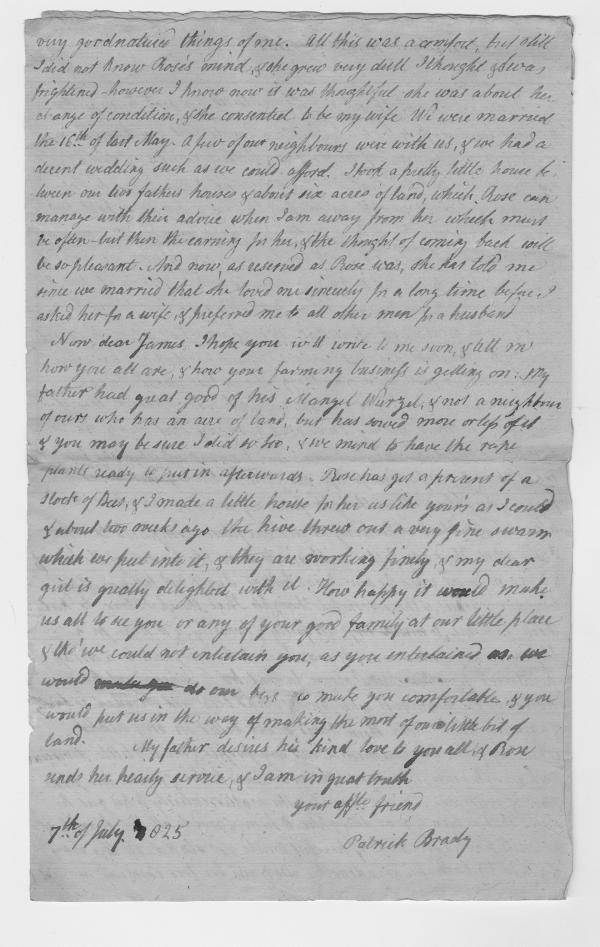 very goodnatured things of me. All this was a comfort, but still
I did not know Rose's mind, & she grew very dull I thought & I was
frightned - however I know now it was thoughtful she was about her
change of condition, & she consented to be my wife We were married
the 16th of last May. A few of our neighbours were with us, & we had a
decent wedding such as we could afford. I took a pretty little house be
tween our two fathers houses & about six acres of land, which Rose can
manage with their advice when I am away from her which must
be often - but then the earning for her, & the thought of coming back will
be so pleasant. And now, as reserved as Rose was, she has told me
since we married that she loved me sincerely for a long time before I
asked her for a wife, & preferred me to all other men for a husband
Now dear James I hope you will write to me soon, & tell me
how you all are, & how your farming business is getting on. My
father had great good of his Mangel Wurzel, & not a neighbour
of ours who has an acre of land, but has sowed more or less of it
& you may be sure I did so too, & we mind to have the rape
plants ready to put in afterwards. Rose has got a present of a
stock of Bees, & I made a little house for her as like your's as I could
& about two weeks ago the hive threw out a very fine swarm
which we put into it, & they are working finely, & my dear
girl is greatly delighted with it. How happy it would make
us all to see you or any of your good family at our little place
& tho' we could not entertain you, as you entertained us. we
would make you do our best to make you comfortable, & you
would put us in the way of making the most of our little bit of
land. My father desires his kind love to you all, & Rose
sends her hearty service, & I am in great truth
your affte friend
7th of July 1825
Patrick Brady